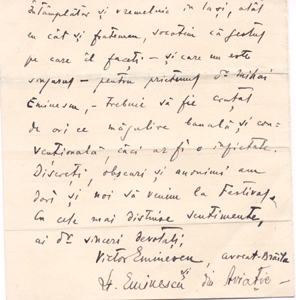 întâmplător și vremelnic în Iași, atât
cu cât și fratemeu, socotim că gestul
pe care îl faceți — și care nu este
singurul — pentru prietenul dv Mihai
Eminescu, — trebuie să fie cruțat
de ori ce măgulire banală și con-
vențională, căci ar fi o impietate.
Discreți, obscuri și anonimi am
dori și noi să venim la Festival,
Cu cele mai distinse sentimente,
ai dv sinceri devotați,
Victor Eminescu, avocat-Brăila
și
Eminescu din Aviație